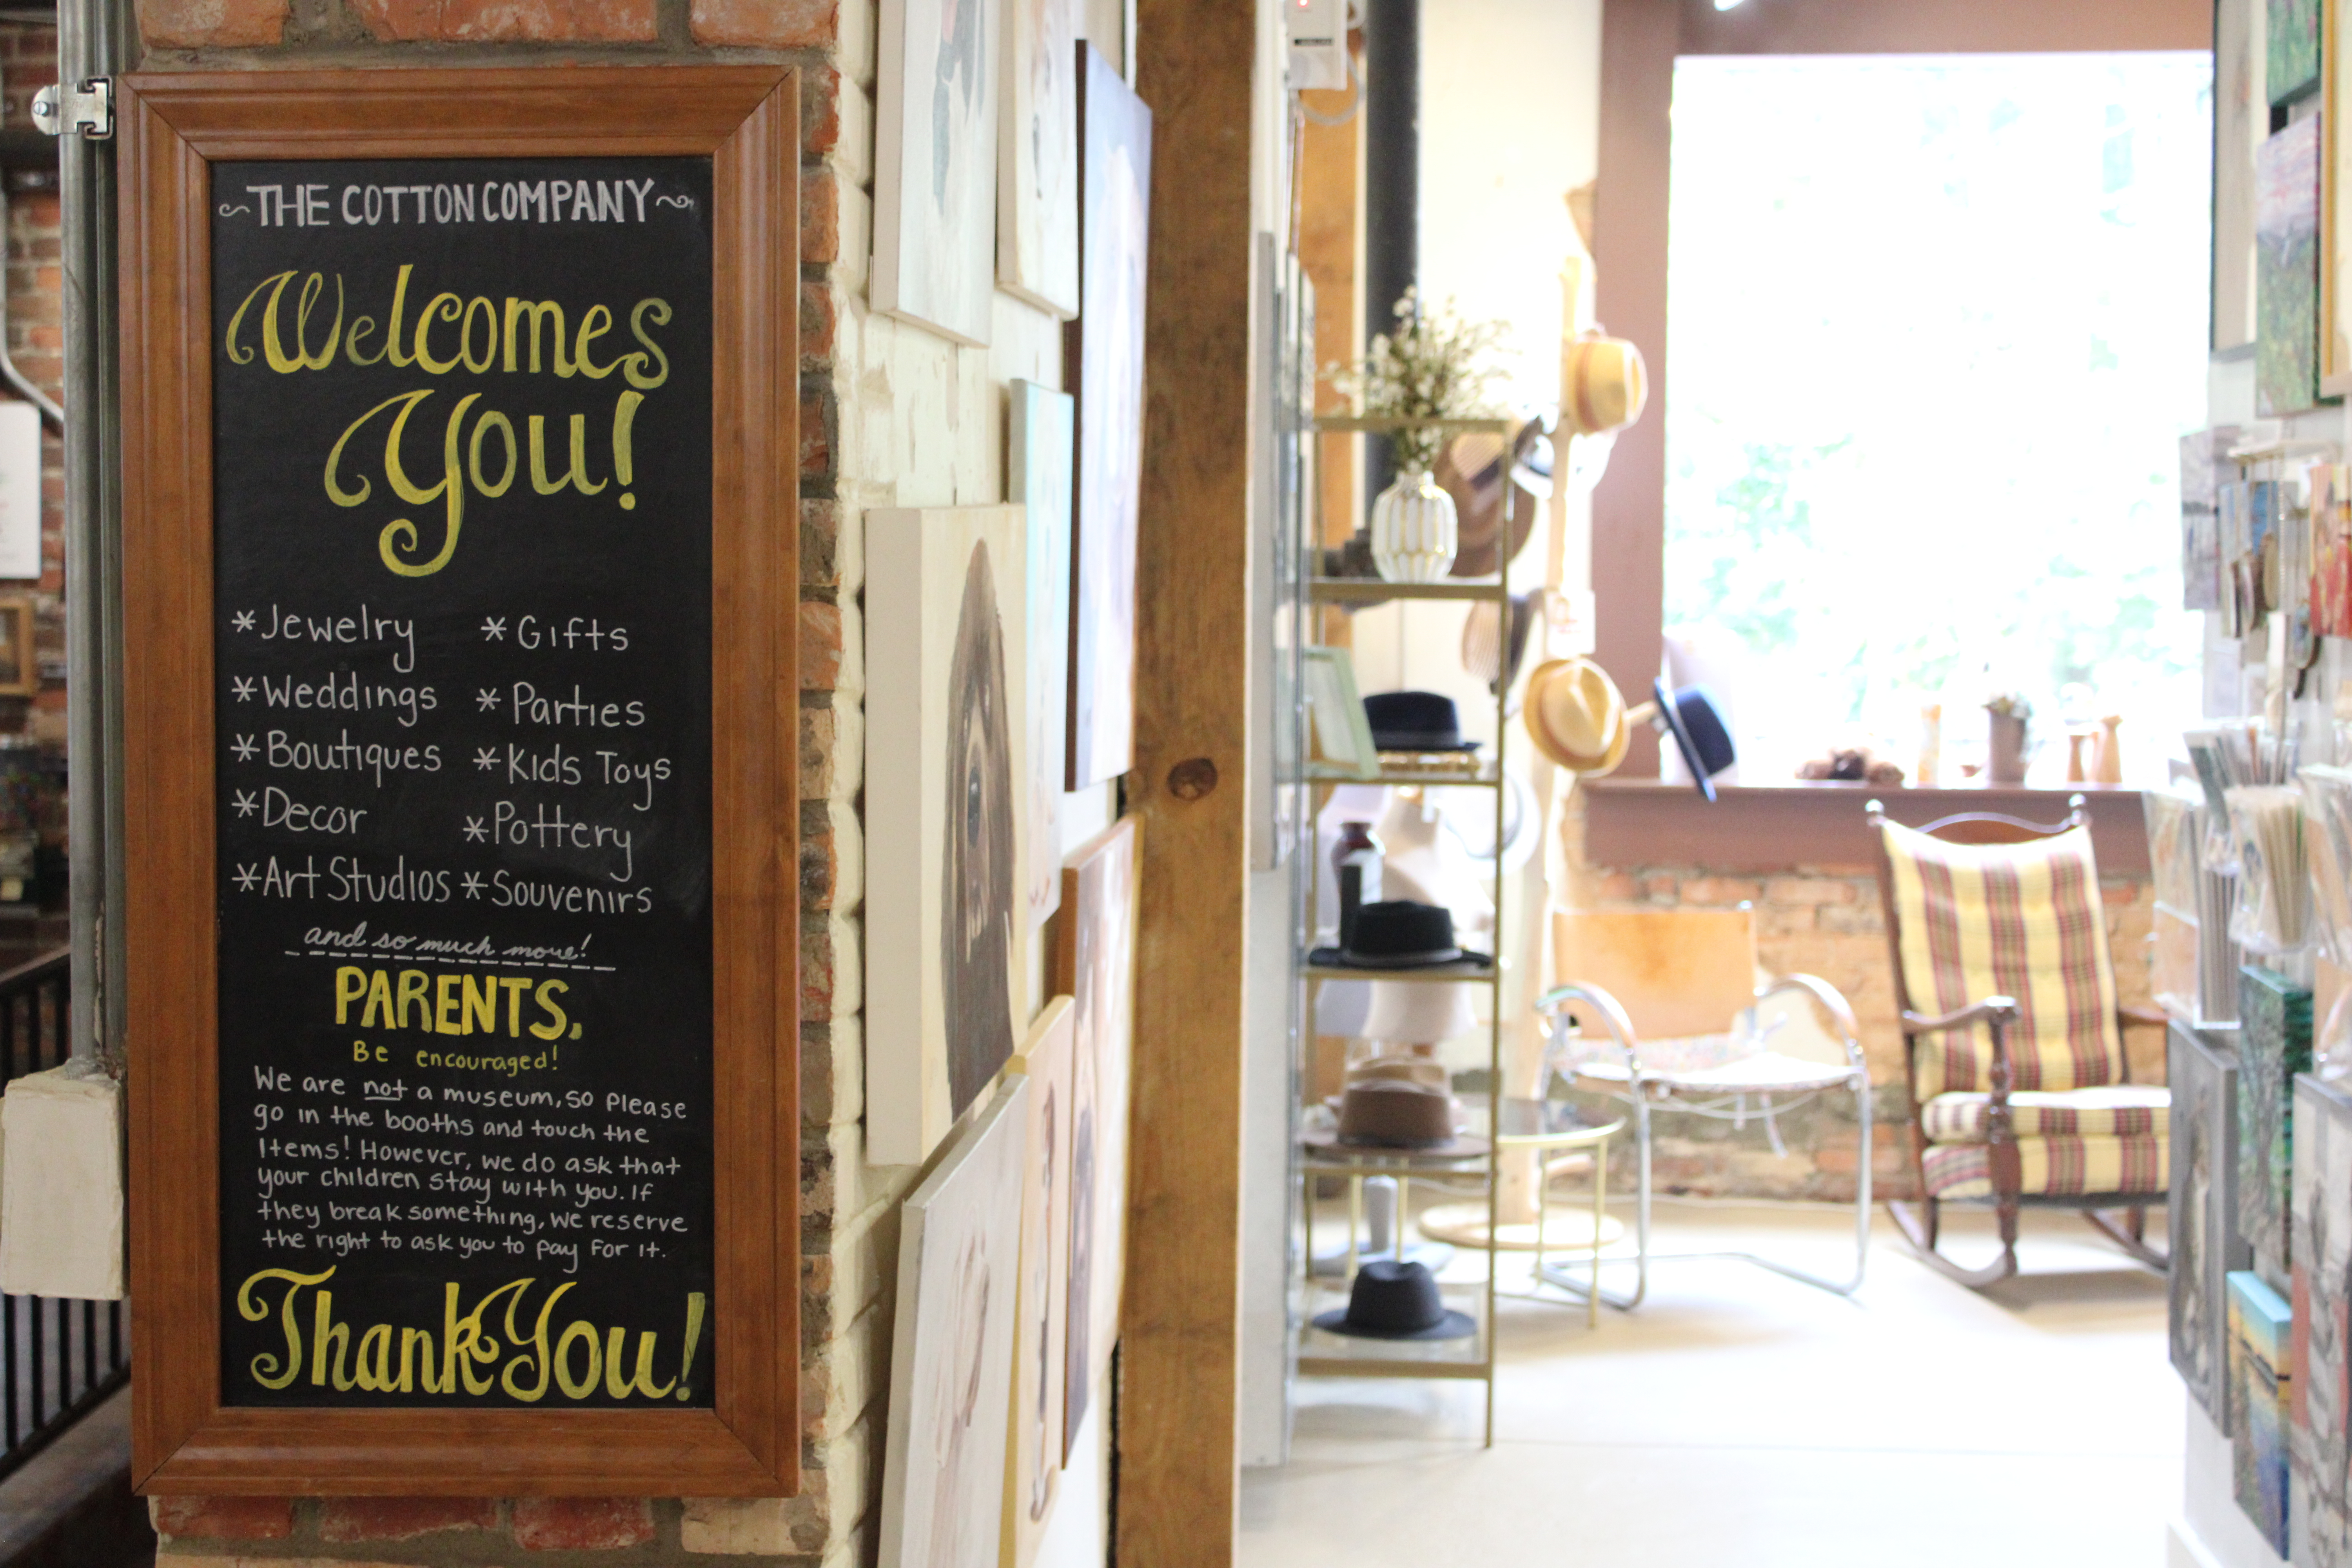 ~THE COTTON COMPANY~
Welcomes
You!
*Jewelry *Gifts
*Weddings *Parties
*Boutiques *Kids Toys
*Decor *Pottery
*Art Studios *Souvenirs
and so much more!
PARENTS,
Be encouraged!
We are not a museum, so please
go in the booths and touch the
Items! However, we do ask that
your children stay with you. If
they break something, we reserve
the right to ask you to pay for it.
Thank You!